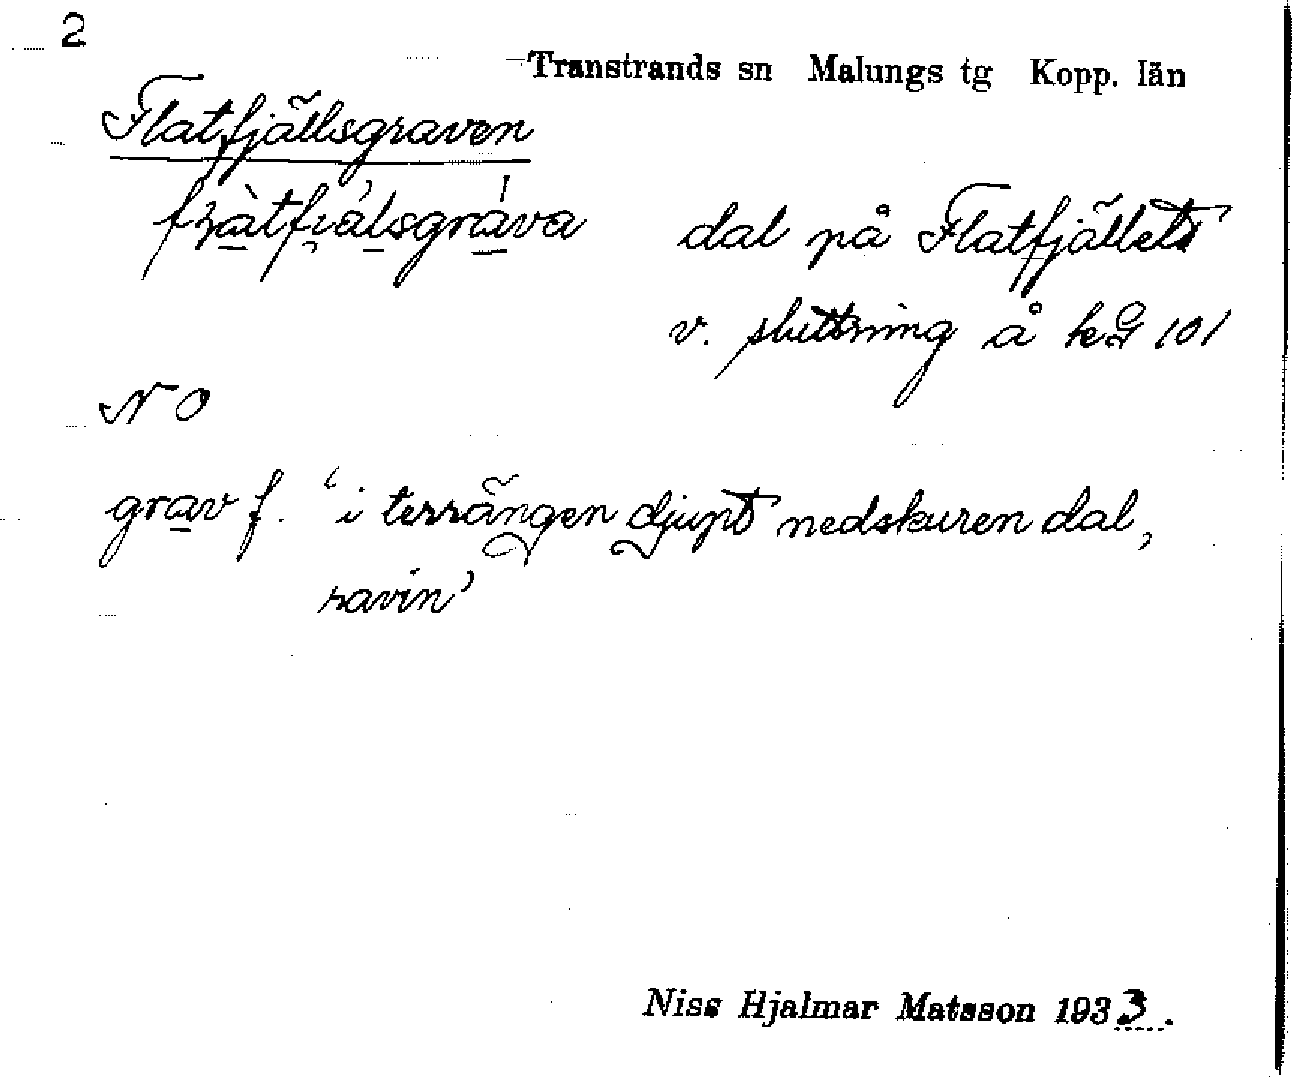 2
Transtrands sn Malungs tg Kopp. län
Flatfjällsgraven
dal på Flatfjällets
v. sluttning å kg 101
NO
grav f. ‘i terrängen djupt nedskuren dal,
ravin’
Niss Hjalmar Matsson 1933.